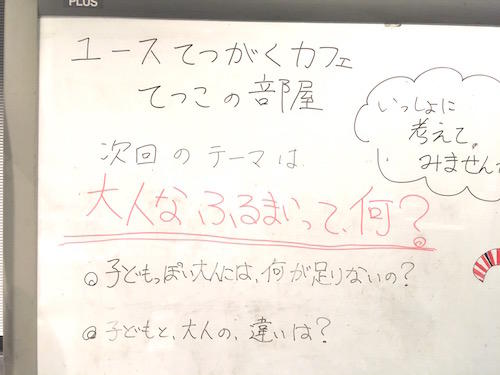 PLUS
ユースてつがくカフェ
てつこの部屋
いっしょに
考えて。
みませんか
次回のテーマは
大人なふるまいって、何？
子どもっぽい大人には、何が足りないの？
子どもと、大人の、違いは？